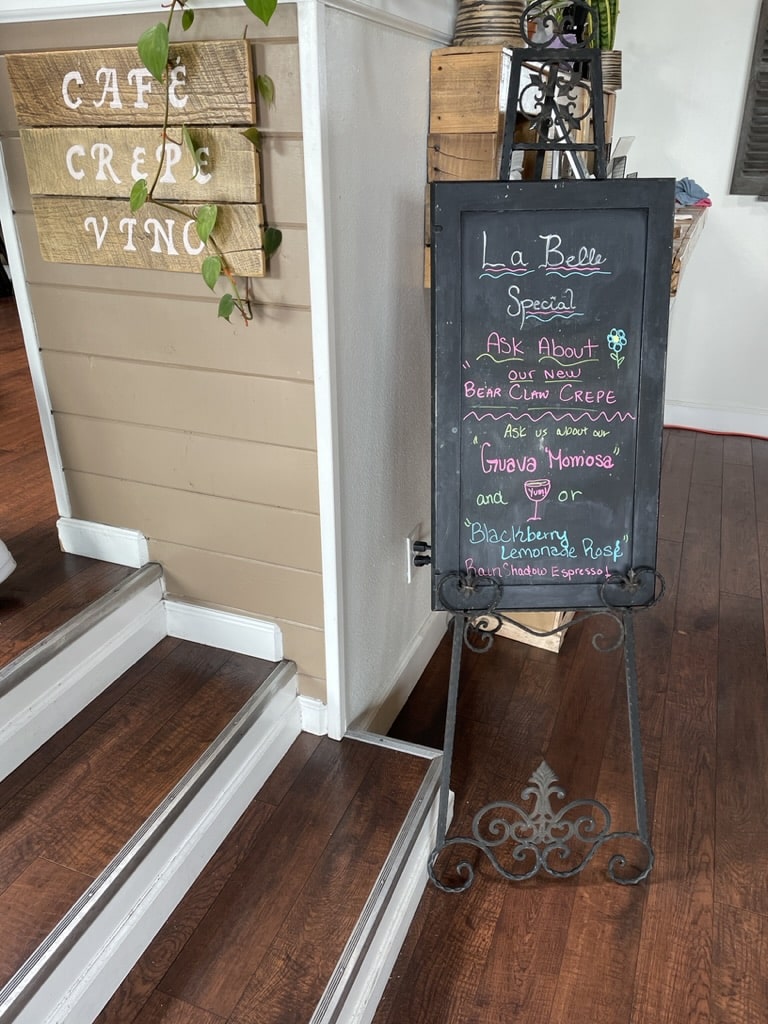 CAFÉ
CREPE
VINO
La Belle
Special
Ask About
our New
"Bear Claw Crepe
"Ask us about our
"Guava "Momosa"
and Yum! or
"Blackberry
Lemonade Rosé"
RainShadow Espresso!